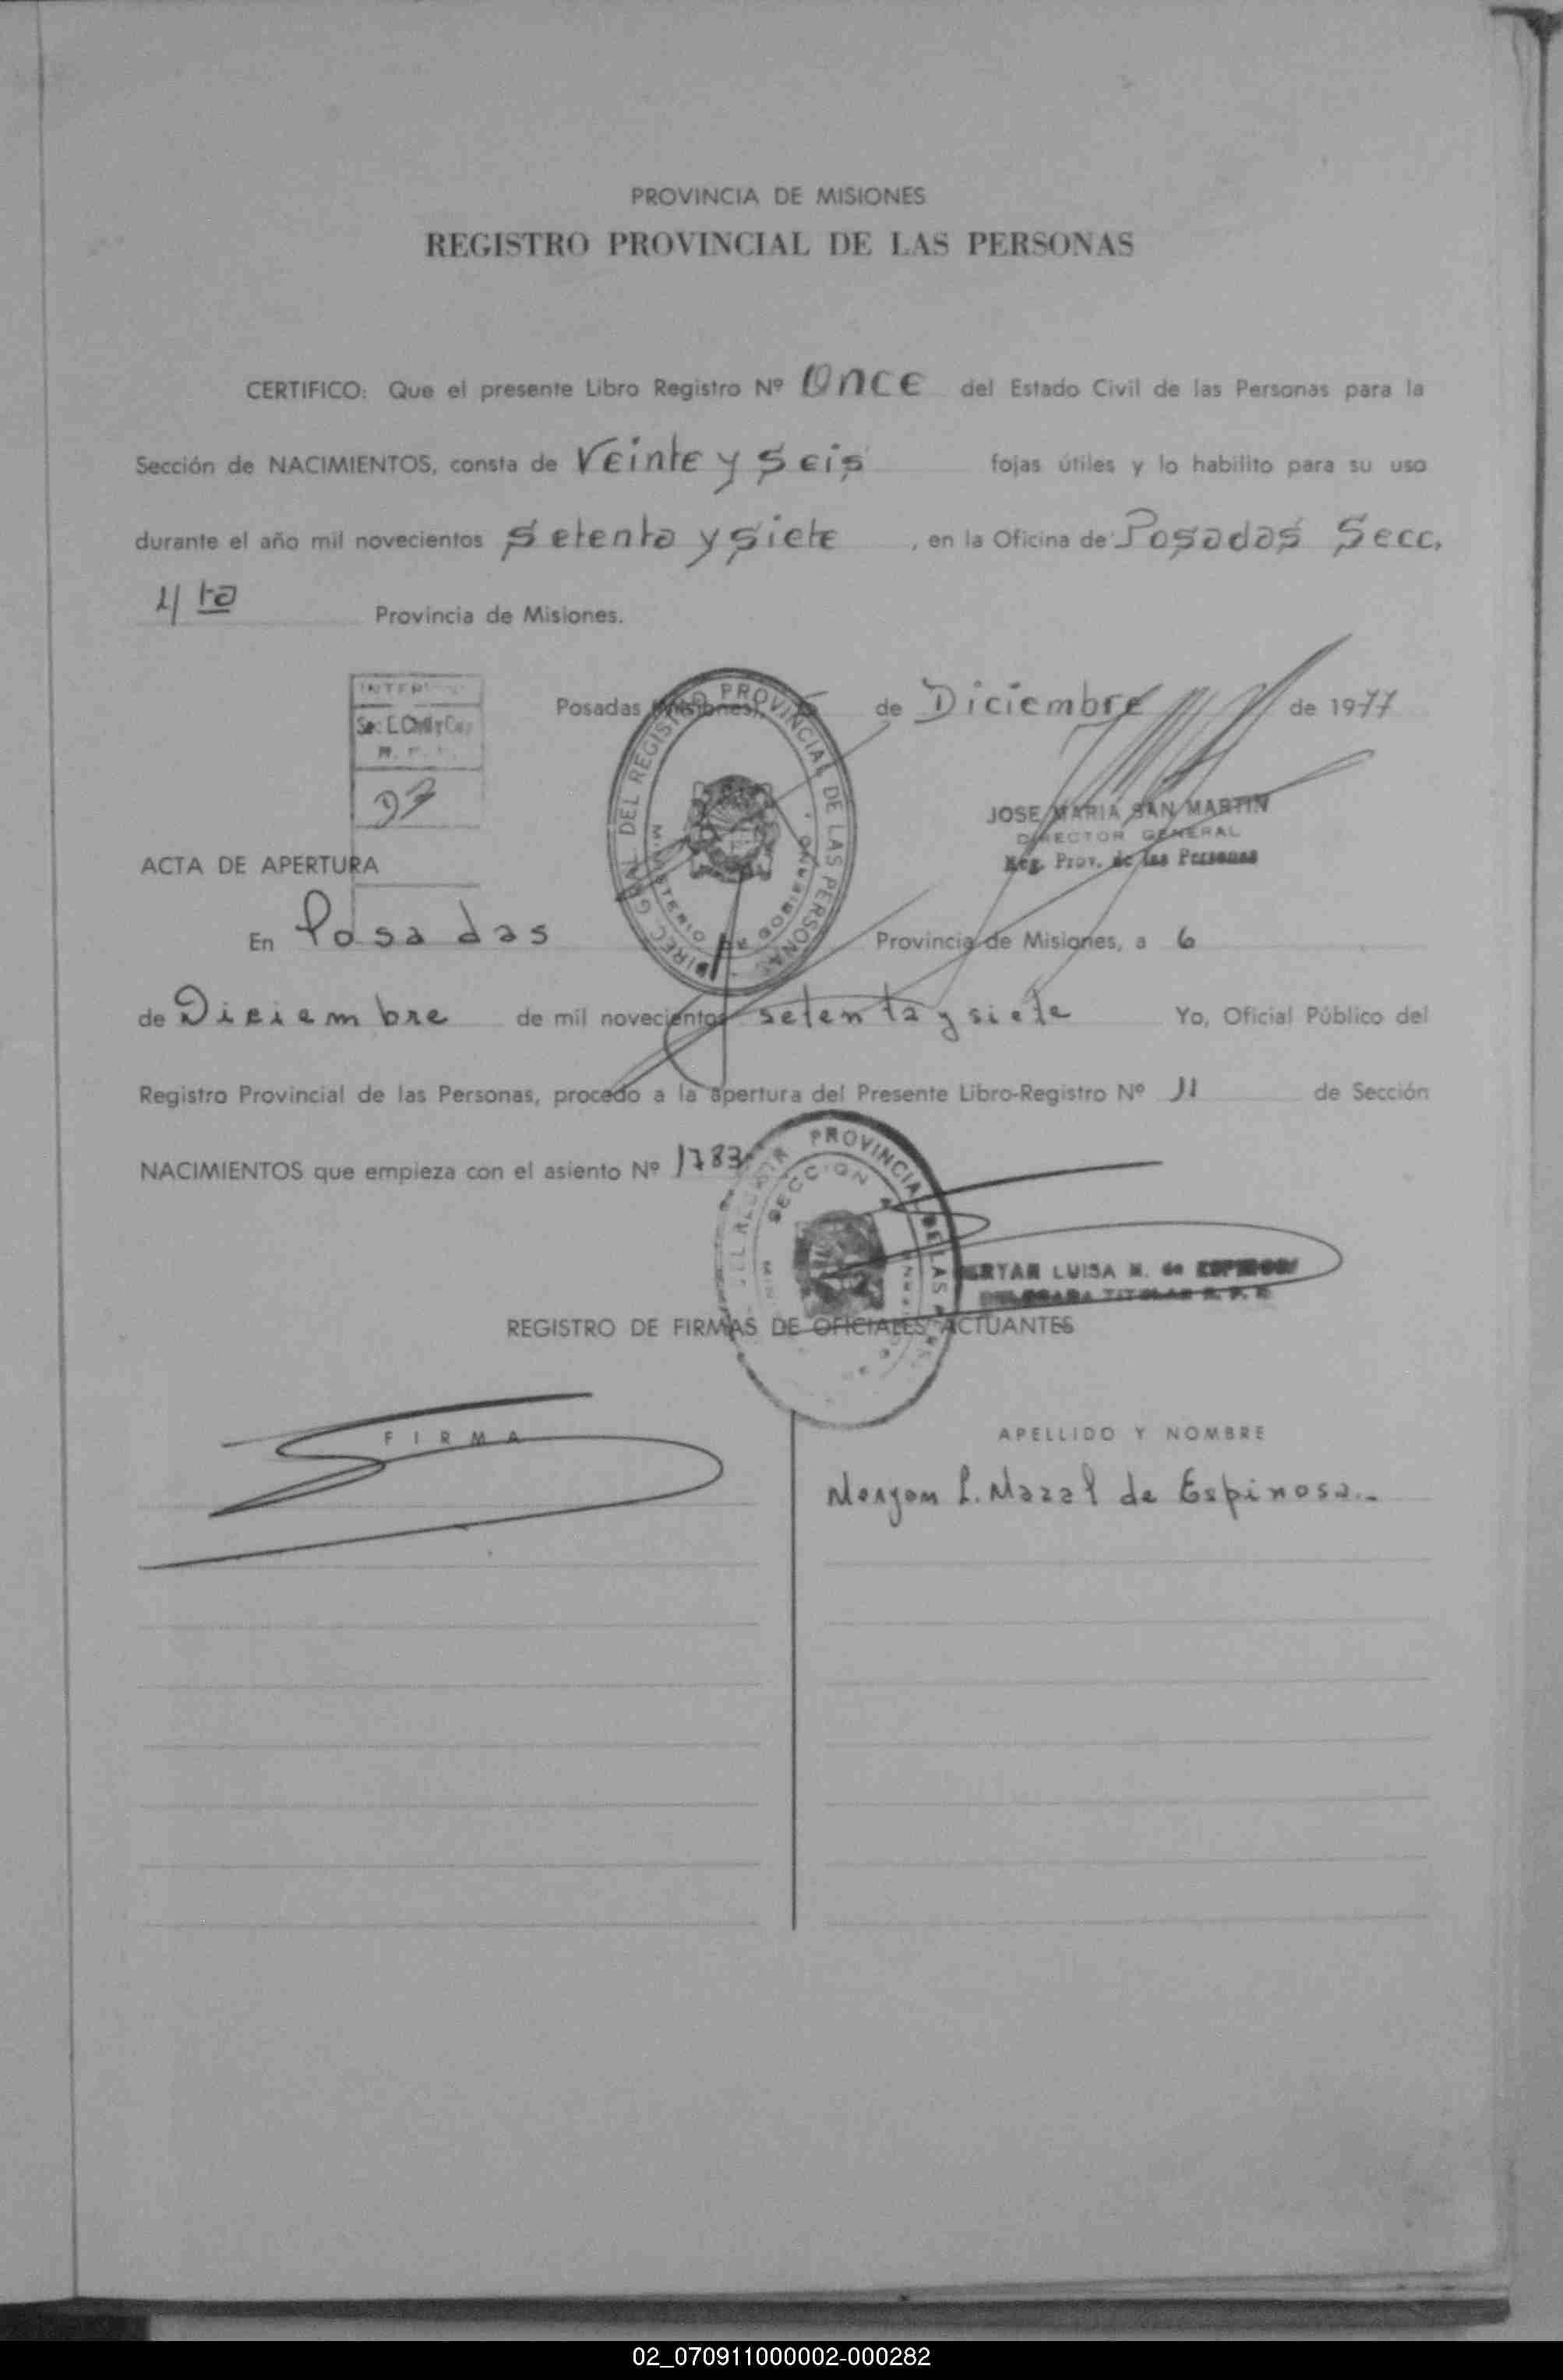 PROVINCIA DE MISIONES
REGISTRO PROVINCIAL DE LAS PERSONAS
CERTIFICO: Que el presente Libro Registro Nº Once del Estado Civil de las Personas para la
Sección de NACIMIENTOS, consta de Veinte y Seis fojas útiles y lo habilito para su uso
durante el año mil novecientos Setenta y Siete , en la Oficina de Posadas Secc.
4ta Provincia de Misiones.
Posadas (Misiones), de Diciembre de 1977
DIREC GRAL DEL REGISTRO PROVINCIAL DE LAS PERSONAS
MINISTERIO DE GOBIERNO
JOSE MARIA SAN MARTIN
DIRECTOR GENERAL
Reg. Prov. de las Personas
ACTA DE APERTURA
En Posadas Provincia de Misiones, a 6
de Diciembre de mil novecientos setenta y siete Yo, Oficial Público del
Registro Provincial de las Personas, procedo a la apertura del Presente Libro-Registro Nº 11 de Sección
NACIMIENTOS que empieza con el asiento Nº 1783
PROVINCIAL DE LAS
SECCION
LUISA M. de ESPINOSA
REGISTRO DE FIRMAS DE OFICIALES ACTUANTES
FIRMA
APELLIDO Y NOMBRE
L. Mazal de Espinosa.-
02_070911000002-000282